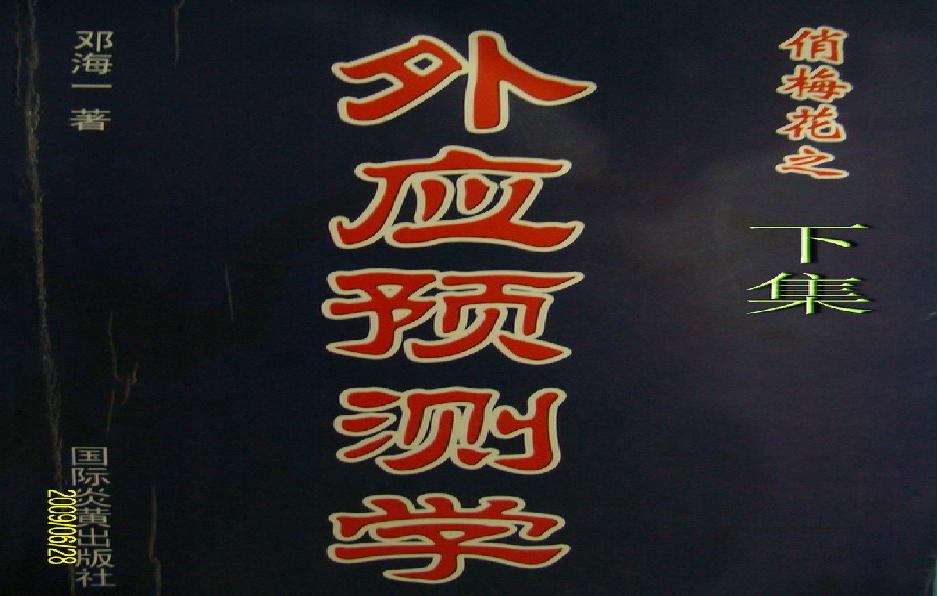 俏梅花之
下集
外应预测学
邓海一 著
国际炎黄出版社
2009/06/28